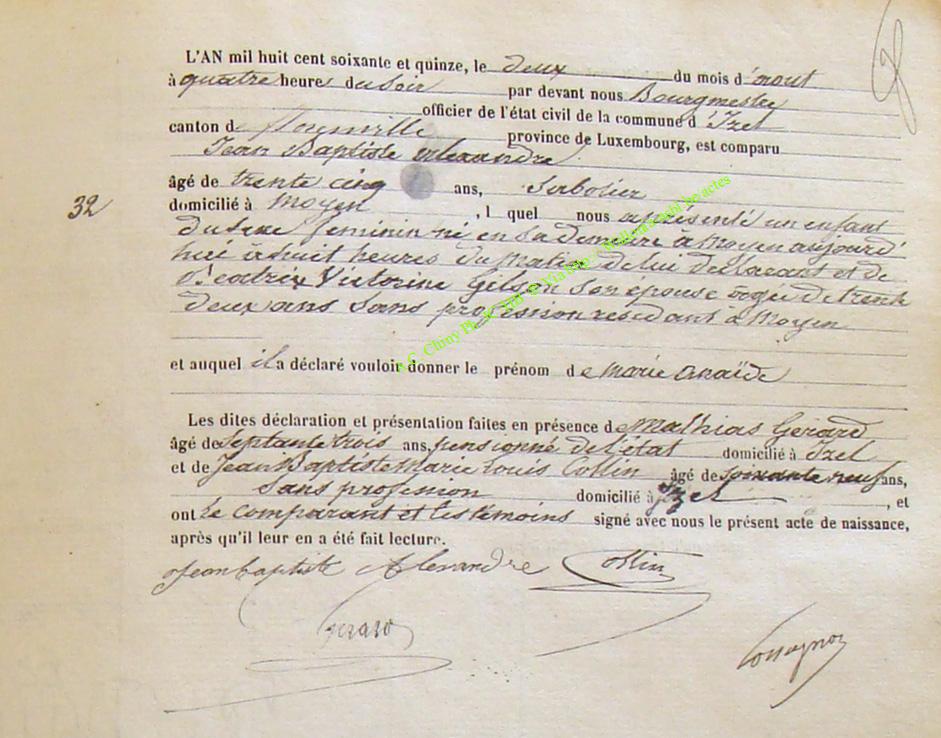 L'AN mil huit cent soixante et quinze, le deux du mois d'aout
à quatre heures du soir par devant nous Bourgmestre
officier de l'état civil de la commune d'Izel
canton de Florenville province de Luxembourg, est comparu
Jean Baptiste Alexandre
âgé de trente cinq ans, Sabotier
domicilié à Moyen, l quel nous a présenté un enfant
32
du sexe féminin né en sa demeure à Moyen aujourd'
hui à huit heures du Matin de lui déclarant et de
Victorine Gilson son épouse âgée de trente
deux ans sans profession résidant à Moyen
et auquel il a déclaré vouloir donner le prénom de Marie Anaïde
Les dites déclaration et présentation faites en présence de Mathias Gérard
âgé de Septante trois ans, pensionné de l'état domicilié à Izel
et de Jean Baptiste Marie Louis Collin âgé de soixante neuf ans,
Sans profession domicilié à Izel, et
ont le comparant et les témoins signé avec nous le présent acte de naissance,
après qu'il leur en a été fait lecture.
Jean baptiste Alexandre Collin
Gerard